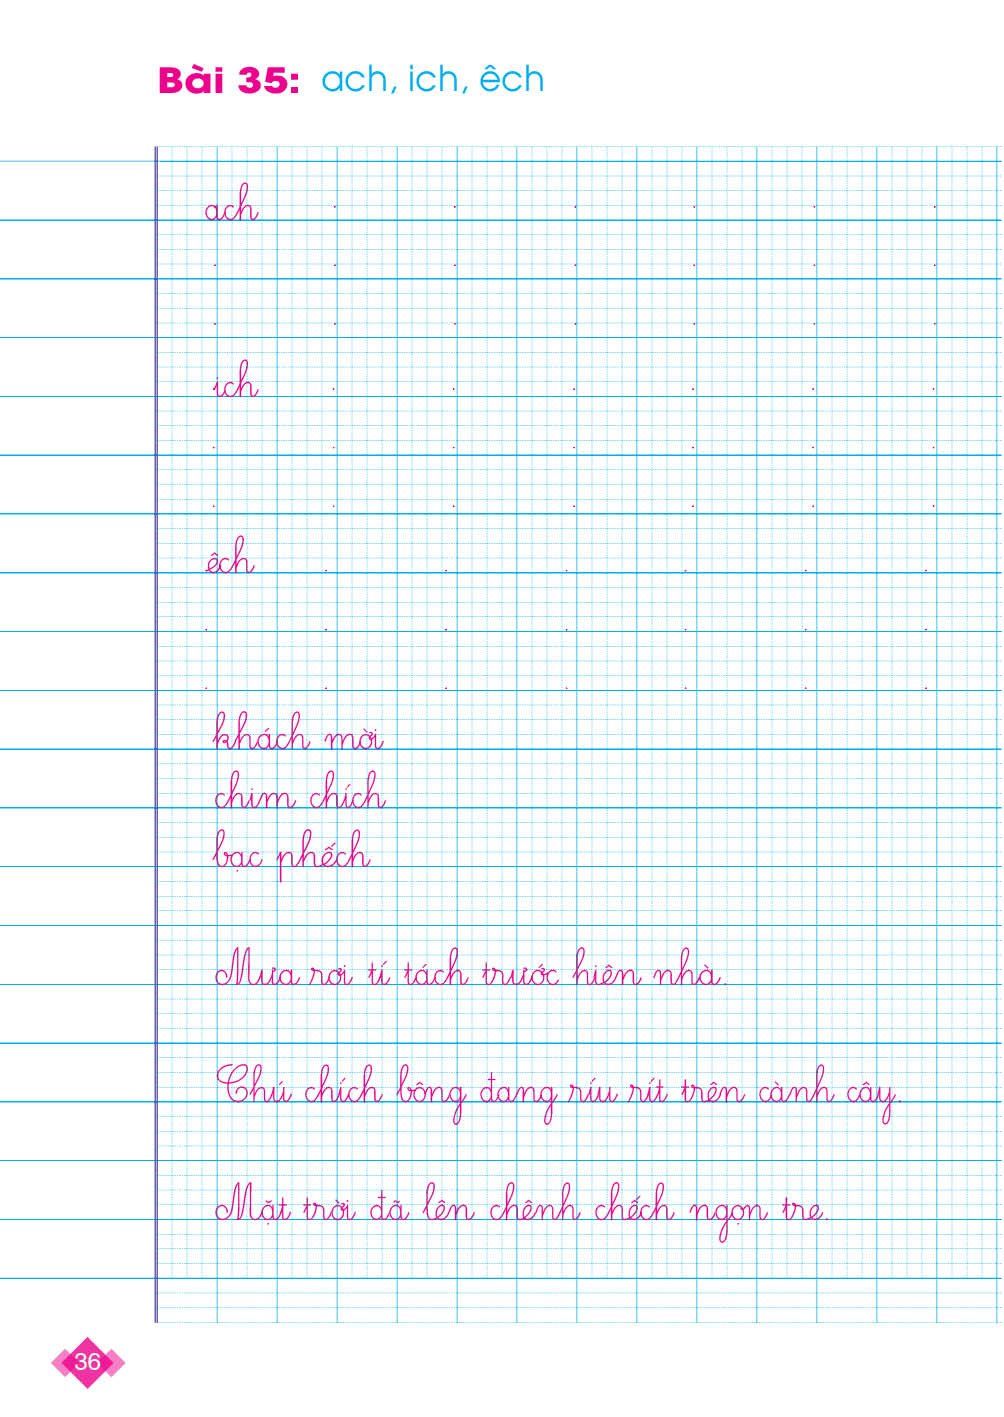 Bài 35: ach, ich, êch
ach
ich
êch
khách mời
chim chích
bạc phếch
Mưa rơi tí tách trước hiên nhà.
Chú chích bông đang ríu rít trên cành cây.
Mặt trời đã lên chênh chếch ngọn tre.
36